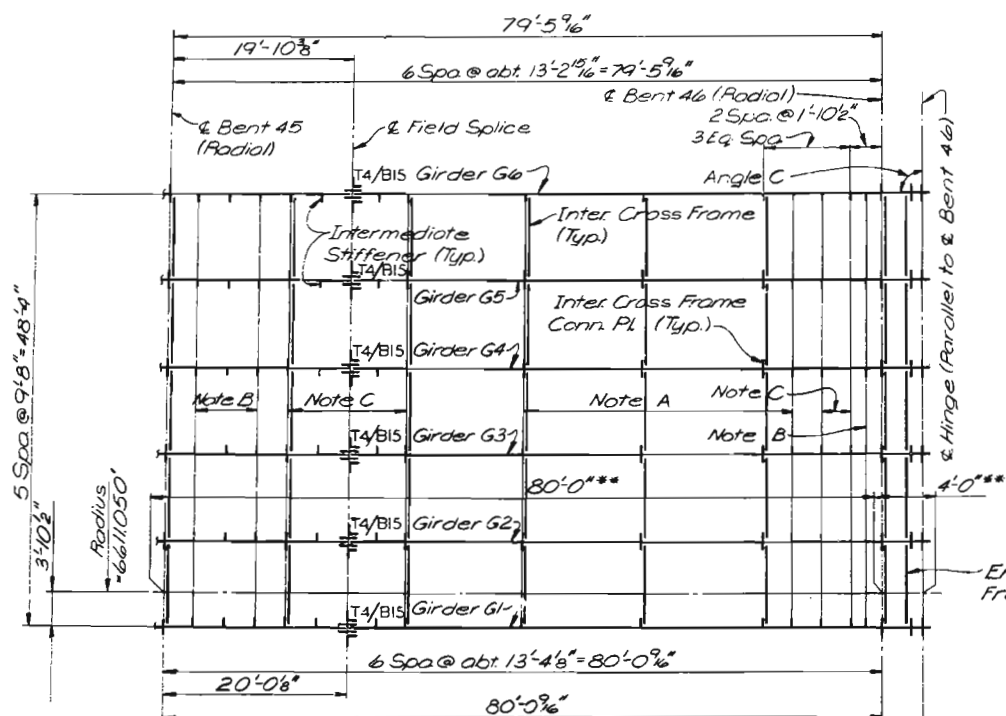 79'-5 9/16"
19'-10 3/8"
6 Spa. @ abt. 13'-2 15/16" = 79'-5 9/16"
℄ Bent 46 (Radial)
2 Spa. @ 1'-10 1/2"
3 Eq. Spa.
℄ Bent 45
(Radial)
℄ Field Splice
℄ Hinge (Parallel to ℄ Bent 46)
T4/B15 Girder G6
Angle C
Inter. Cross Frame
(Typ.)
Intermediate
Stiffener (Typ.)
T4/B15
Girder G5
Inter. Cross Frame
Conn. Pl. (Typ.)
T4/B15
Girder G4
5 Spa @ 9'-8" = 48'-4"
Note B
Note C
Note A
Note C
T4/B15
Girder G3
Note B
80'-0"**
4'-0"**
Radius
=6611.050'
3'-10 1/2"
T4/B15
Girder G2
Fra
T4/B15
Girder G1
6 Spa @ abt. 13'-4 1/8" = 80'-0 9/16"
20'-0 1/8"
80'-0 9/16"